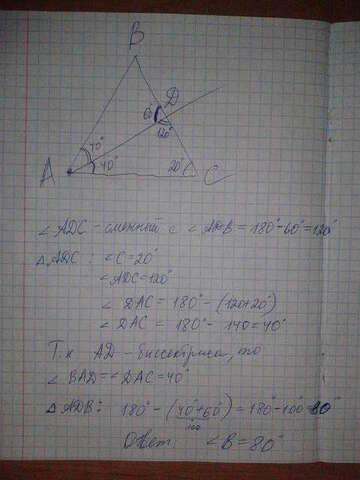 B
D
60°
120°
40°
40°
20°
A
C
∠ADC - смежный с ∠ADB = 180°-60°=120°
△ADC: ∠C=20°
∠ADC=120°
∠DAC = 180° - (120+20°)
∠DAC = 180° - 140=40°
Т.к AD - биссектриса, то
∠BAD=∠DAC=40°
△ADB: 180° - (40°+60°) = 180°-100°=80°
100
Ответ ∠B=80°